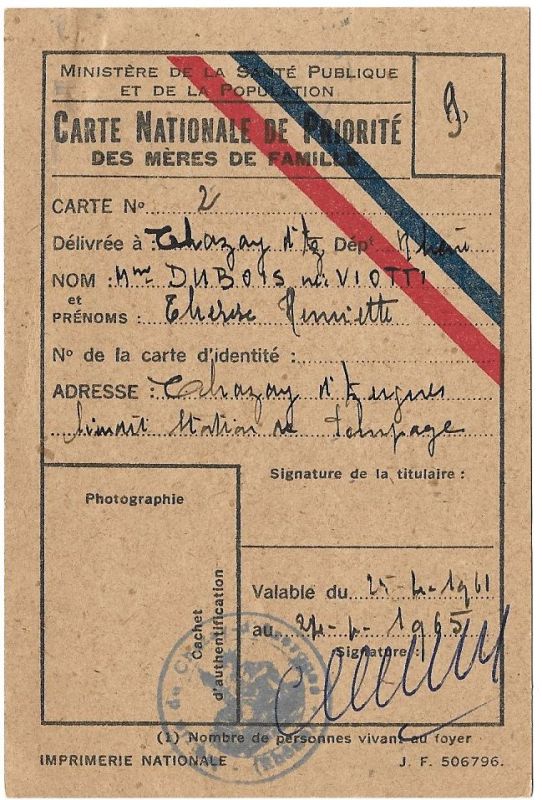 MINISTÈRE DE LA SANTÉ PUBLIQUE
ET DE LA POPULATION
9
CARTE NATIONALE DE PRIORITÉ
DES MÈRES DE FAMILLE
CARTE No 2
Délivrée à : Chazay d'Az Dépt Rhône
NOM : Mme DUBOIS née VIOTTI
et
PRÉNOMS : Thérèse Henriette
No de la carte d'identité :
ADRESSE : Chazay d'Azergues
Station de Pompage
Signature de la titulaire :
Photographie
Cachet
d'authentification
Valable du 25-4-1961
au 24-4-1965
Signature :
(1) Nombre de personnes vivant au foyer
IMPRIMERIE NATIONALE J. F. 506796.